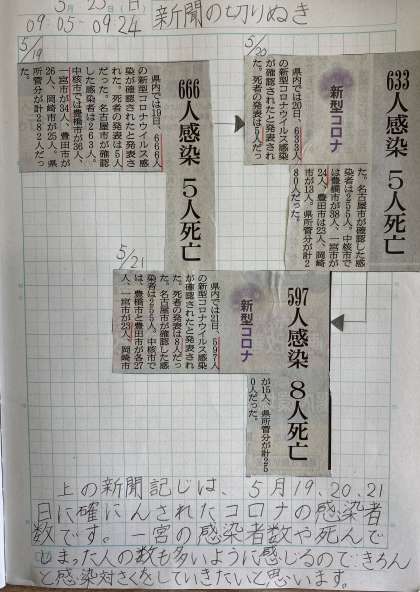 5月23日(日)
09:05-09:24 新聞の切りぬき
5/19
666人感染 5人死亡
県内では19日、666人
の新型コロナウイルス感
染が確認されたと発表さ
れた。死者の発表は5人
だった。名古屋市が確認
した感染者は263人、
中核市では豊橋市が36人、
一宮市が34人、豊田市が
26人、岡崎市が25人、県
所管分が計282人だっ
た。
5/20
633人感染 5人死亡
新型コロナ
県内では20日、633人
の新型コロナウイルス感
染が確認されたと発表さ
れた。死者の発表は5人だっ
た。名古屋市が確認した感
染者は255人。中核市で
は豊橋市が38人、一宮市が
24人、豊田市は23人、岡崎
市が13人。県所管分が計2
80人だった。
5/21
597人感染 8人死亡
新型コロナ
県内では21日、597人
の新型コロナウイルス感染
が確認されたと発表され
た。死者の発表は8人だっ
た。名古屋市が確認した感
染者は255人。中核市で
は、豊橋市と豊田市が各27
人、一宮市が23人、岡崎市
が15人、県所管分が計25
0人だった。
上の新聞記じは、5月19、20、21
日に確にんされたコロナの感染者
数です。一宮の感染者数や死んで
しまった人の数も多いように感じるので、きちん
と感染対さくをしていきたいと思います。